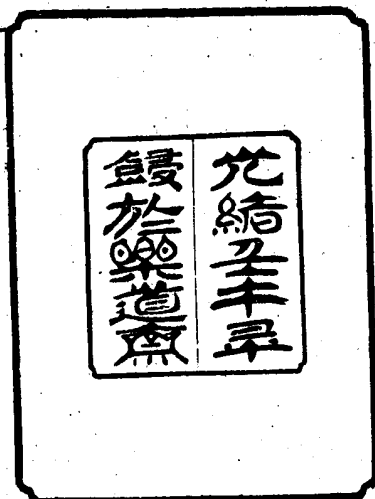 光緒壬午年
鋟於樂道齋